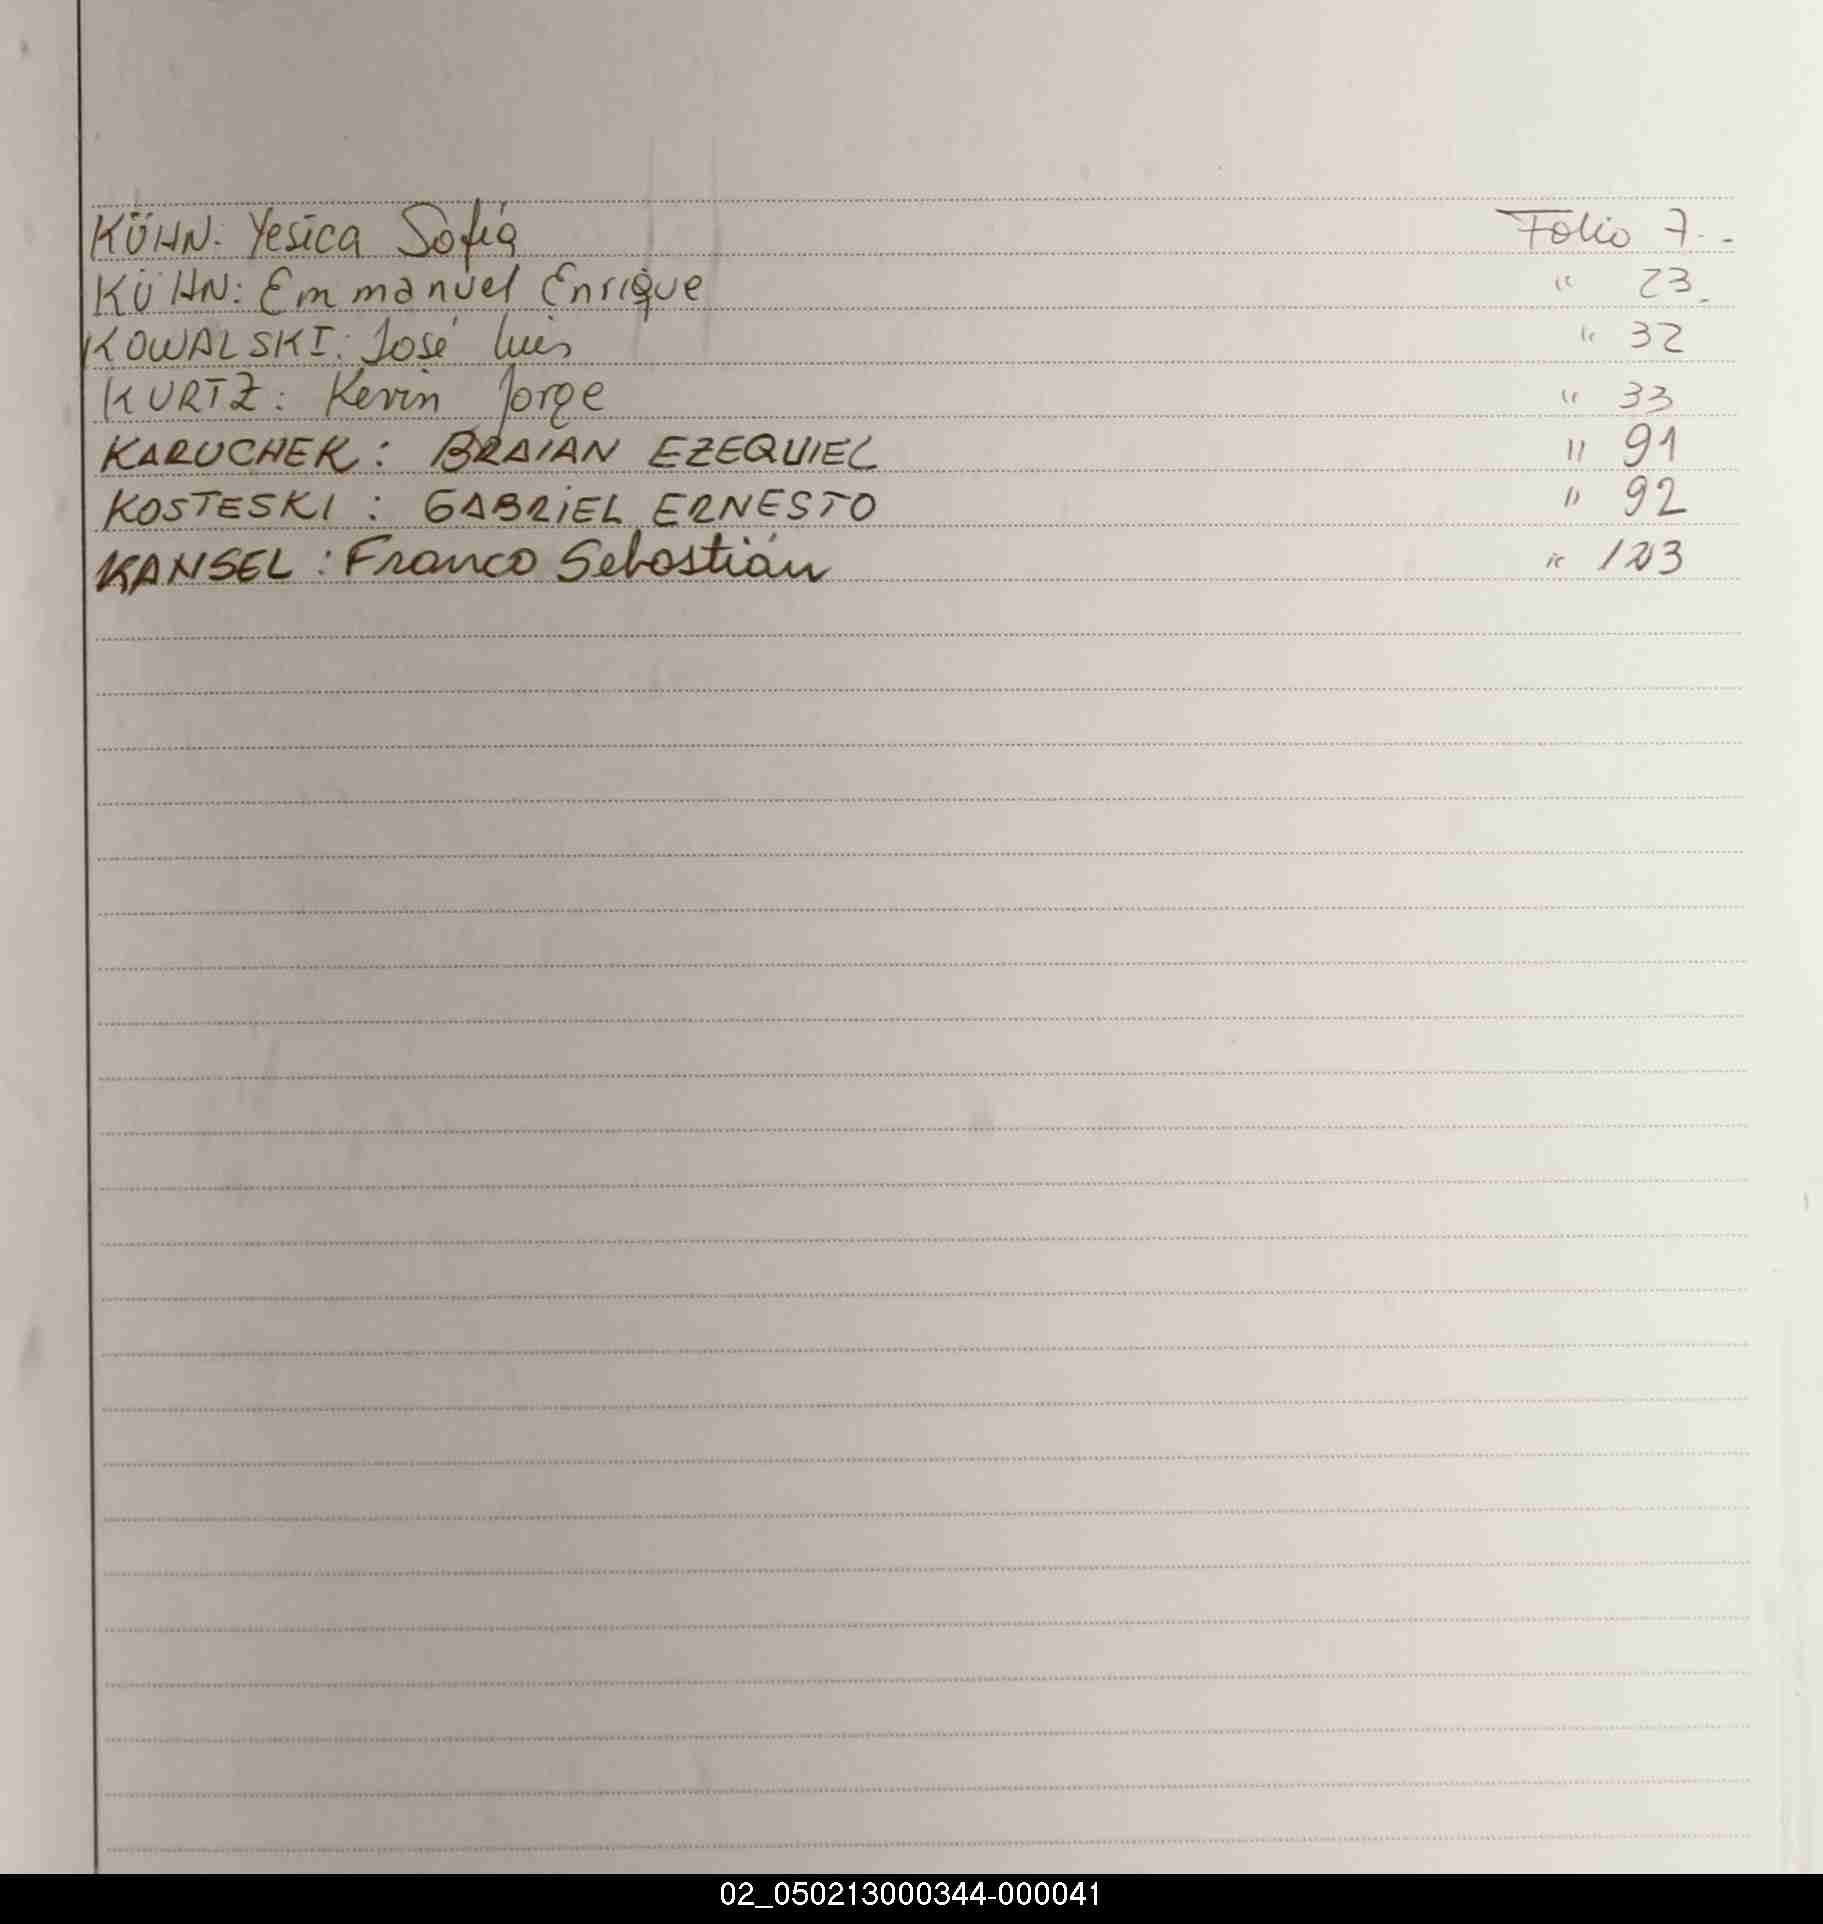 KÜHN: Yesica Sofía Folio 7.-
KÜHN: Emmanuel Enrique " 23.
KOWALSKI: José Luis " 32
KURTZ: Kevin Jorge " 33
KARUCHEK: BRAIAN EZEQUIEL " 91
KOSTESKI: GABRIEL ERNESTO " 92
KANSEL: Franco Sebastián " 123
02_050213000344-000041